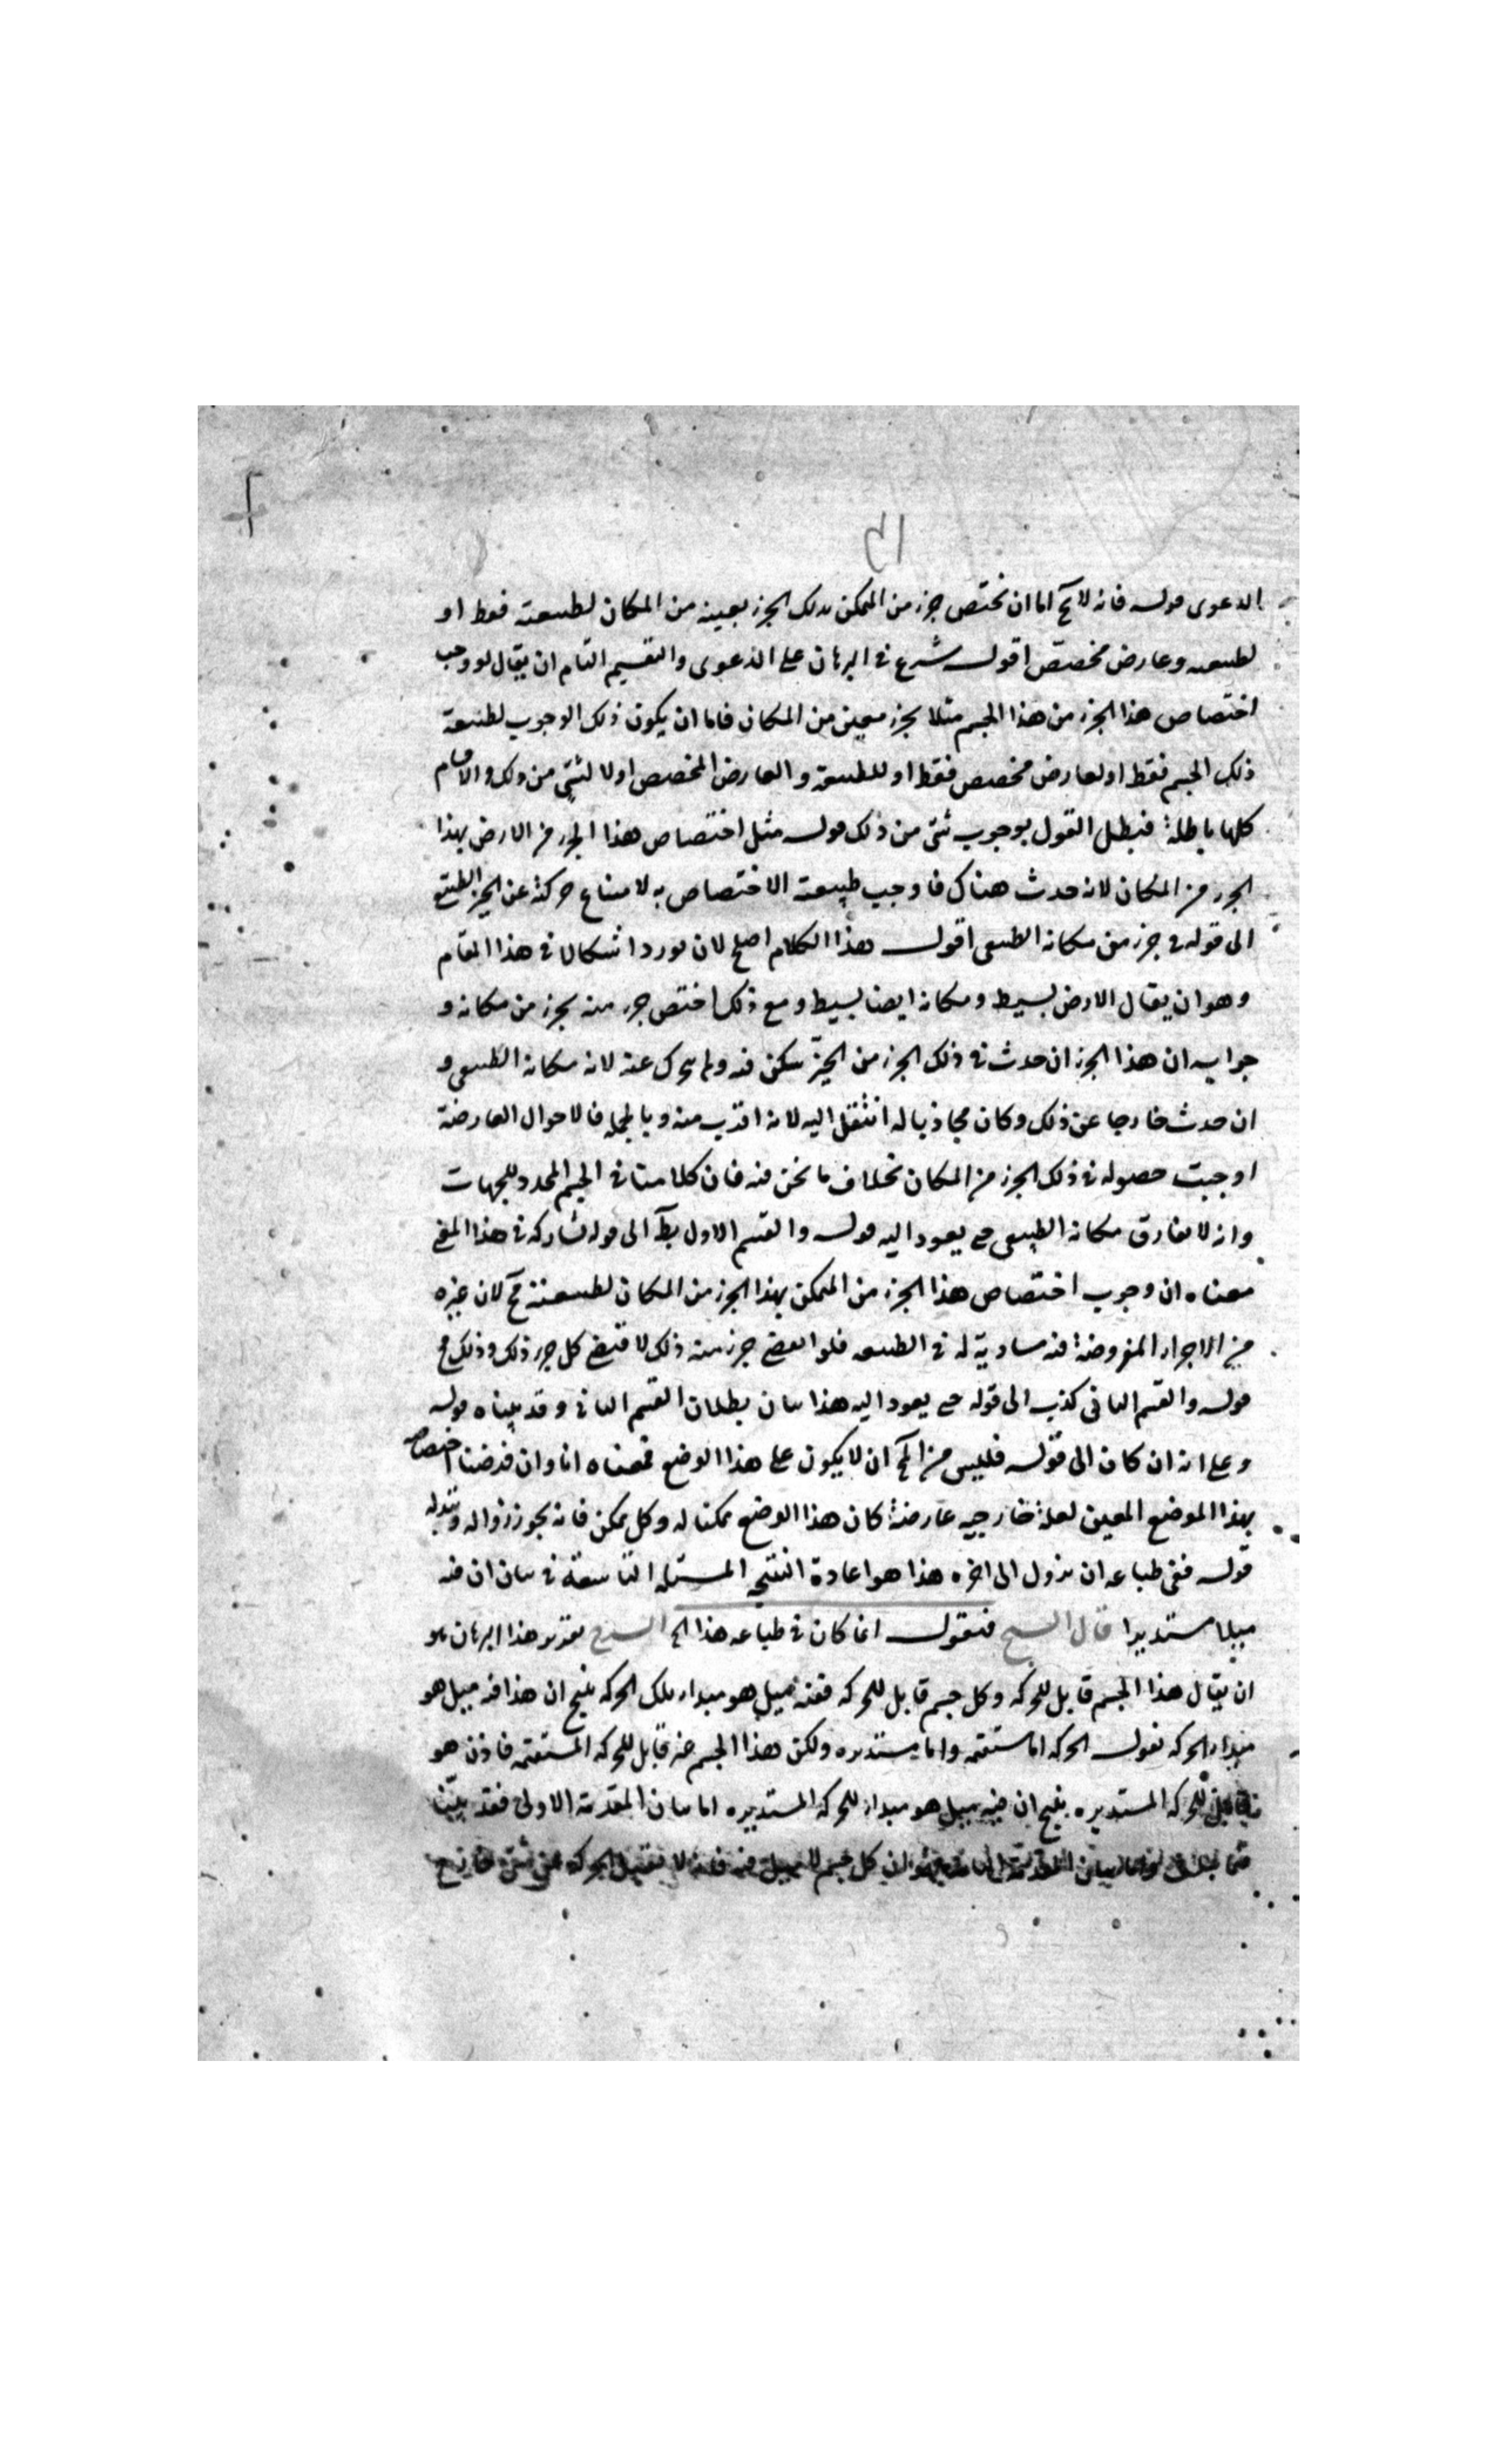 الدعوى قوله فانه لا يخ اما ان يختص جزء من المتمكن بذلك الجزء بعينه من المكان لطبيعته فقط او
لطبيعته وعارض مخصص اقول شرع فى البرهان على الدعوى والتقسيم التام ان يقال لو وجب
اختصاص هذا الجزء من هذا الجسم مثلا بجزء معين من المكان فاما ان يكون ذلك الوجوب لطبيعة
ذلك الجسم فقط او لعارض مخصص فقط او للطبيعة والعارض المخصص او لا لشئ من ذلك والاقسام
كلها باطلة فبطل القول بوجوب شئ من ذلك قوله مثل اختصاص هذا الجزء من الارض بهذا
الجزء من المكان لانه حدث هناك فاوجب طبيعته الاختصاص به لامتناع حركته عن الحيز الطبيعى
الى قوله فى جزء من مكانه الطبيعى اقول هذا الكلام اصلح لان يورد اشكالا فى هذا المقام
وهو ان يقال الارض بسيط ومكانه ايضا بسيط ومع ذلك اختص جزء منه بجزء من مكانه و
جوابه ان هذا الجزء ان حدث فى ذلك الجزء من الحيز سكن فيه ولم يتحرك عنه لانه مكانه الطبيعى و
ان حدث خارجا عن ذلك وكان محاذيا له انتقل اليه لانه اقرب منه وبالجملة فالاحوال العارضة
اوجبت حصوله فى ذلك الجزء من المكان بخلاف ما نحن فيه فان كلامنا فى الجسم المحدد للجهات
وانه لا يفارق مكانه الطبيعى حتى يعود اليه قوله والقسم الاول بط الى قوله تشاركه فى هذا المعنى
معناه ان وجوب اختصاص هذا الجزء من المتمكن بهذا الجزء من المكان لطبيعته مح لان غيره
من الاجزاء المفروضة فيه مساوية له فى الطبيعه فلو اقتضى جزء منه ذلك لاقتضى كل جزء ذلك وذلك مح
قوله والقسم الثانى كذب الى قوله حتى يعود اليه هذا بيان بطلان القسم الثانى وقد بيناه قوله
وعلى انه ان كان الى قوله فليس من المح ان لا يكون على هذا الوضع فمعناه انا وان فرضنا اختصاصه
بهذا الموضع المعين لعلة خارجيه عارضة كان هذا الوضع ممكنا له وكل ممكن فانه يجوز زواله وتبدله
قوله ففى طباعه ان يزول الى اخره هذا هو اعادة النتيجه المسئله التاسعة فى بيان ان فيه
ميلا مستديرا قال الشيخ فنقول انما كان فى طباعه هذا الخ الشرح تقرير هذا البرهان هو
ان يقال هذا الجسم قابل للحركه وكل جسم قابل للحركه ففيه ميل هو مبداء تلك الحركه ينتج ان هذا فيه ميل هو
مبداء الحركه نقول الحركه اما مستقيمه واما مستديره ولكن هذا الجسم غير قابل للحركه المستقيمه فاذن هو
قابل للحركه المستديره ينتج ان فيه ميل هو مبداء للحركه المستديره اما بيان المقدمة الاولى فقد بينا
ان كل جسم لا ميل فيه فانه لا يقبل الحركه عن شئ خارج